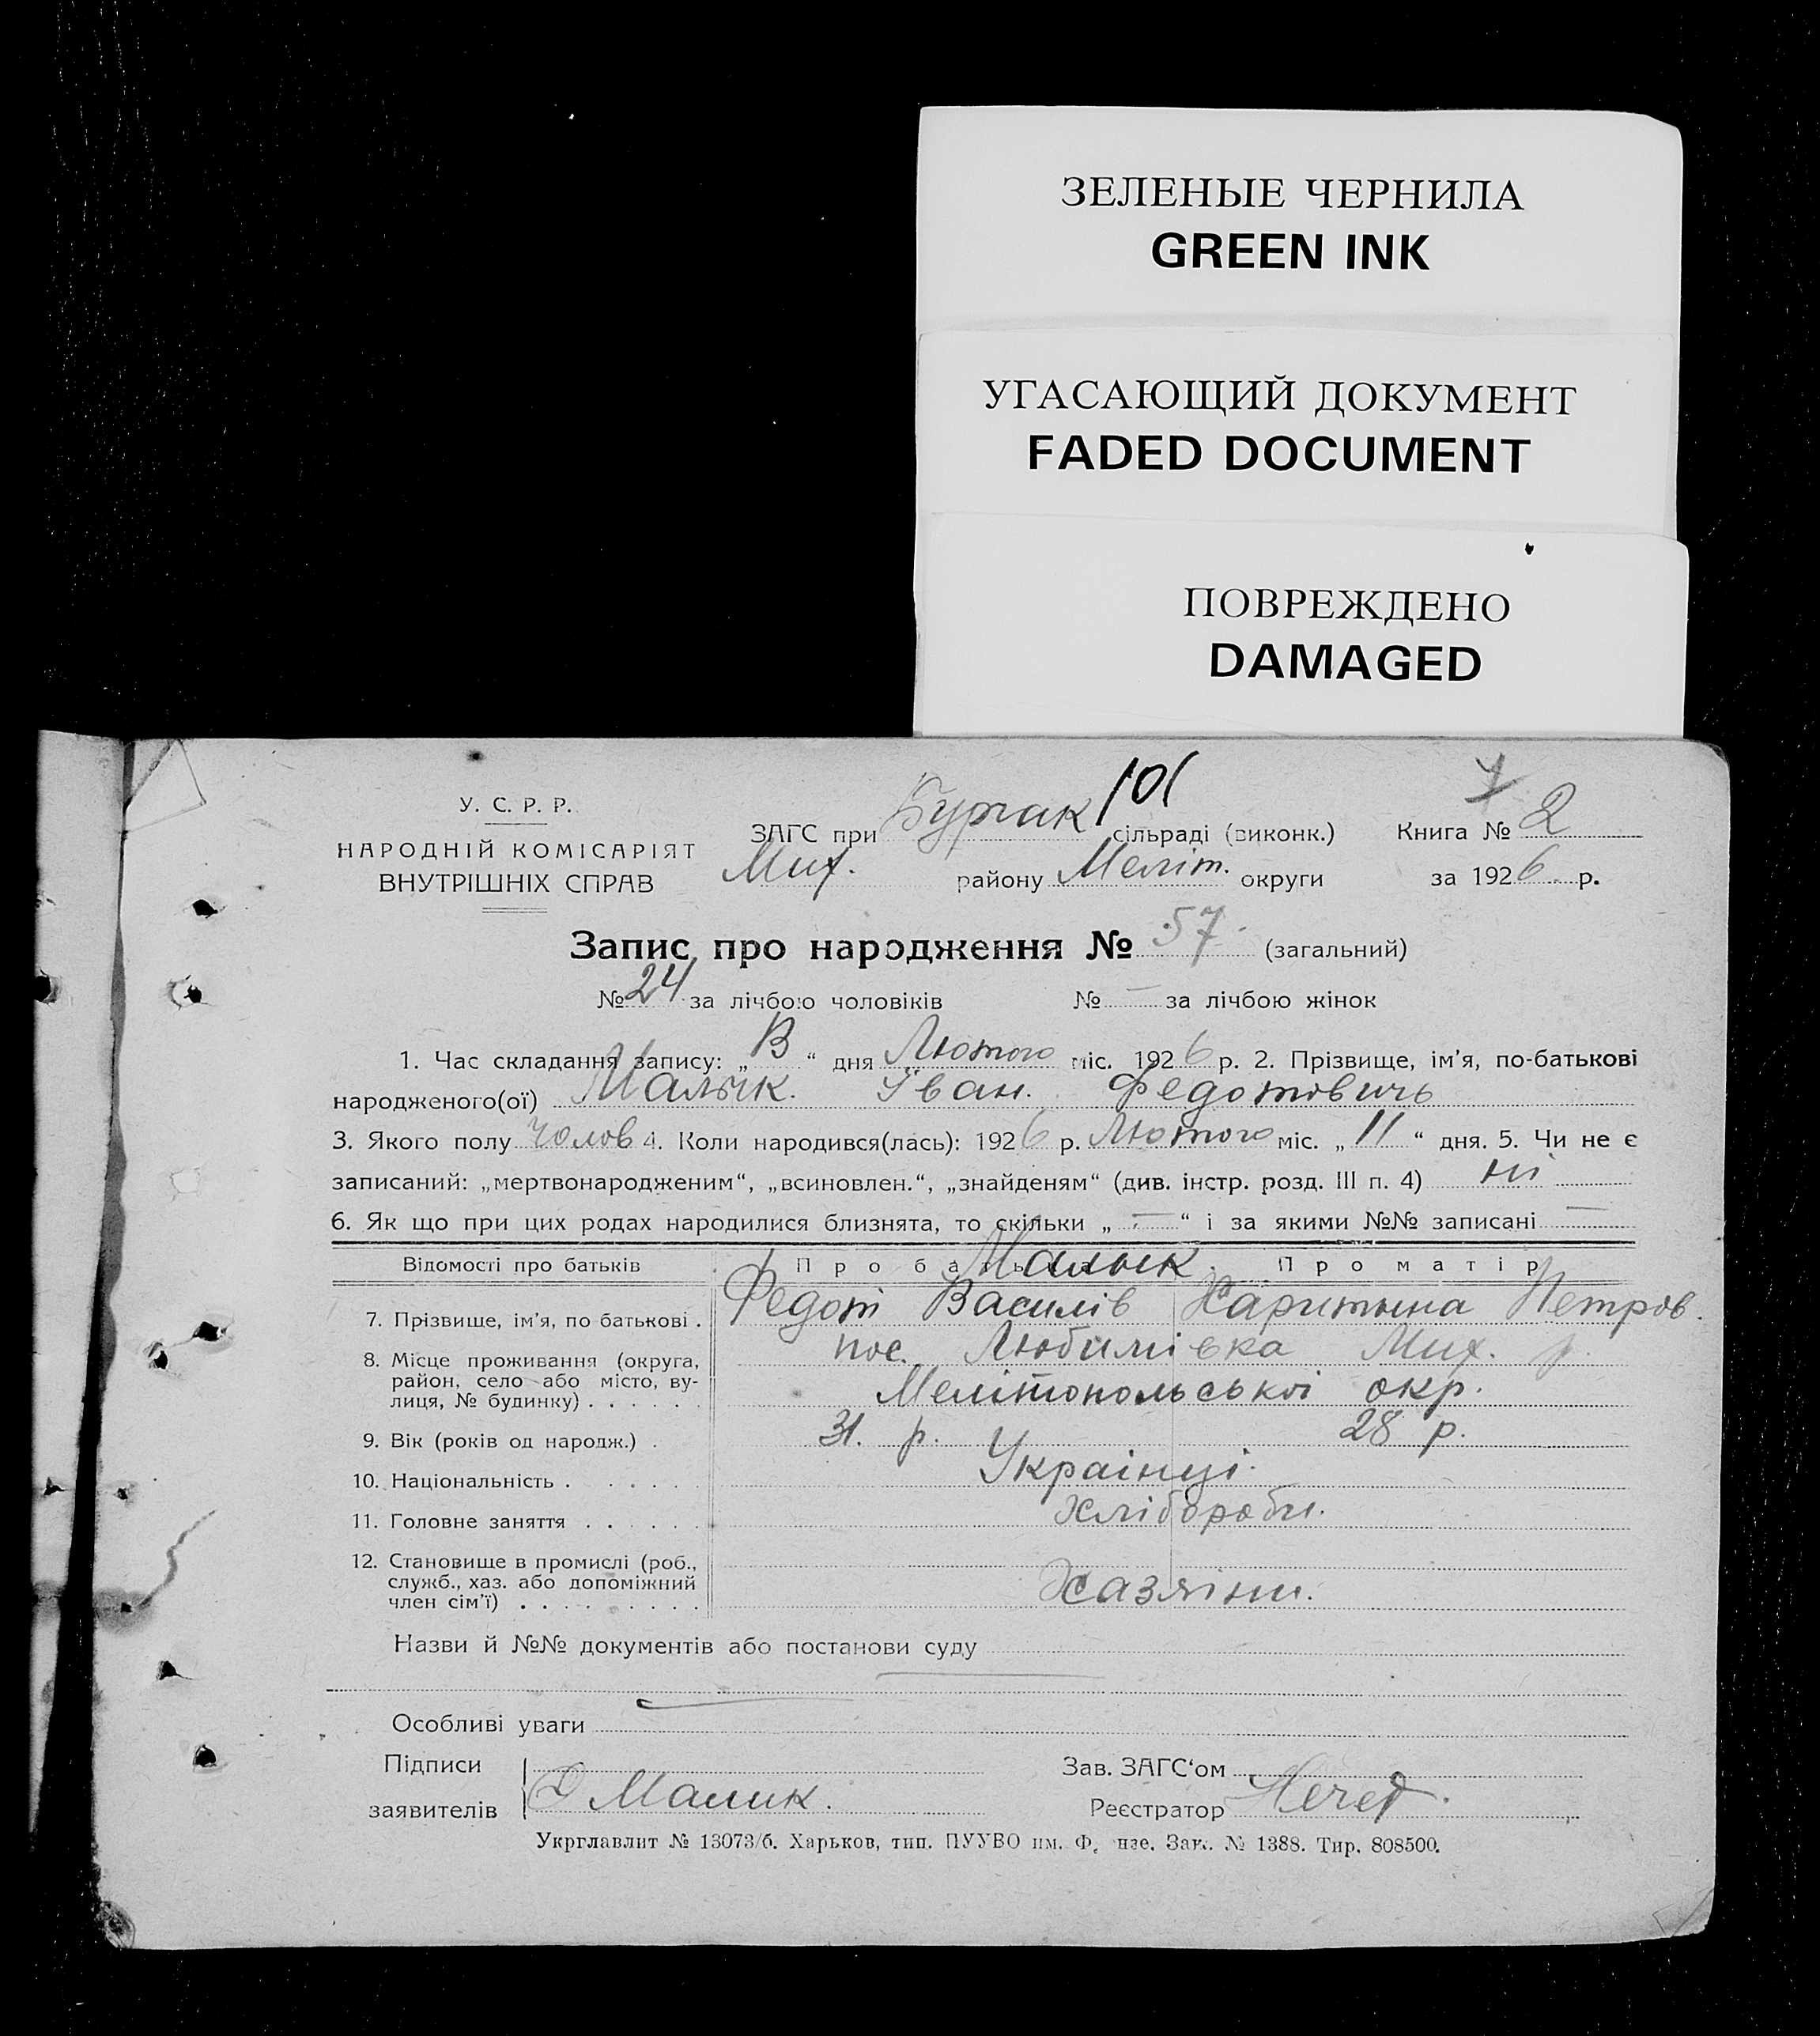 ЗЕЛЕНЫЕ ЧЕРНИЛА
GREEN INK
УГАСАЮЩИЙ ДОКУМЕНТ
FADED DOCUMENT
ПОВРЕЖДЕНО
DAMAGED
101
У. С. Р. Р.
НАРОДНІЙ КОМІСАРІЯТ
ВНУТРІШНІХ СПРАВ
ЗАГС при сільраді (виконк.) Книга № 2
Мих. району Меліт. округи за 1926 р.
Запис про народження № 57. (загальний)
№ 24 за лічбою чоловіків № — за лічбою жінок
1. Час складання запису: „ “ дня Лютого міс. 1926 р. 2. Прізвище, ім’я, по-батькові
народженого(ої) Малык. Іван. Федотовичь
3. Якого полу Чолов 4. Коли народився(лась): 1926 р. Лютого міс. „11“ дня. 5. Чи не є
записаний: „мертвонародженим“, „всиновлен.“, „знайденям“ (див. інстр. розд. III п. 4) ні
6. Як що при цих родах народилися близнята, то скільки „—“ і за якими №№ записані —
Відомості про батьків Про батька Малык. Про матір
7. Прізвище, ім’я, по батькові . Федот Василів Харитына Петров.
8. Місце проживання (округа, пос. Любимівка Мих. р.
район, село або місто, ву-
лиця, № будинку) . . . . . . Мелітопольської окр.
9. Вік (років од народж.) . 31. р. 28 р.
10. Національність . . . . . . Украінці.
11. Головне заняття . . . . . . хлібороби.
12. Становище в промислі (роб.,
служб., хаз. або допоміжний
член сім’ї) . . . . . . . . . Хазяіни.
Назви й №№ документів або постанови суду
Особливі уваги
Підписи Зав. ЗАГС‘ом
заявителів Малик. Реєстратор
Укрглавлит № 13073/б. Харьков, тип. ПУУВО им. Ф. нзе. Зак. № 1388. Тир. 808500.